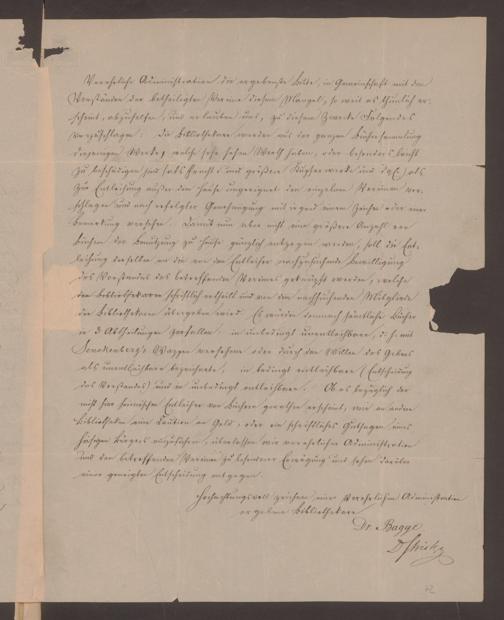 Verehrliche Administration die ergebenste Bitte, in Gemeinschaft mit den
Vorständen der betheiligten Vereine diesem Mangel, so weit es thunlich er-
scheint, abzuhelfen, und erlauben uns, zu diesem Zwecke Folgendes
vorzuschlagen: die Bibliothekare werden aus der ganzen Büchersammlung
diejenigen Werke, welche sehr hohen Werth haben, oder besonders leicht
zu beschädigen sind und größere Kupferwerke und als
zur Entleihung außer dem Hause ungeeignet den einzelnen Vereinen vor-
schlagen und nach erfolgter Genehmigung mit irgend einem Zeichen oder einer
Bemerkung versehen. Damit nun aber nicht eine größere Anzahl von
Büchern der Benutzung zu Hause gänzlich entzogen werde, soll die Ent-
leihung derselben an die von dem Entleiher nachzusuchende Bewilligung
des Vorstandes des betreffenden Vereines geknüpft werden, welche
den Bibliothekaren schriftlich ertheilt und von dem nachsuchenden Mitgliede
den Bibliothekaren übergeben wird. Es würden demnach sämtliche Bücher
in 3 Abtheilungen zerfallen: in unbedingt unentleihbare, d. h. mit
Senckenberg's Wappen versehene oder durch den Willen des Gebers
als unentleihbare bezeichnete, in bedingt entleihbare (Entscheidung
des Vorstandes) und in unbedingt entleihbare. Ob es bezüglich der
nicht hier heimischen Entleiher von Büchern gerathen erscheint, wie an andern
Bibliotheken eine Caution an Geld, oder ein schriftliches Gutsagen eines
hiesigen Bürgers einzuführen, überlassen wir verehrlicher Administration
und den betreffenden Vereinen zu besonderer Erwägung und sehen darüber
einer geneigten Entscheidung entgegen.
Hochachtungsvoll zeichnen einer Verehrlichen Administration
ergebene Bibliothekare
Dr. Bagge
Dr Stricker